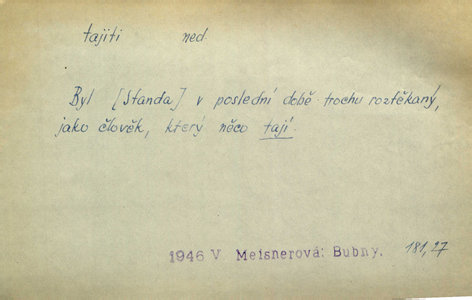 tajiti ned.
Byl [Standa] v poslední době trochu roztěkaný,
jako člověk, který něco tají.
1946 V Meisnerová: Bubny. 181,27